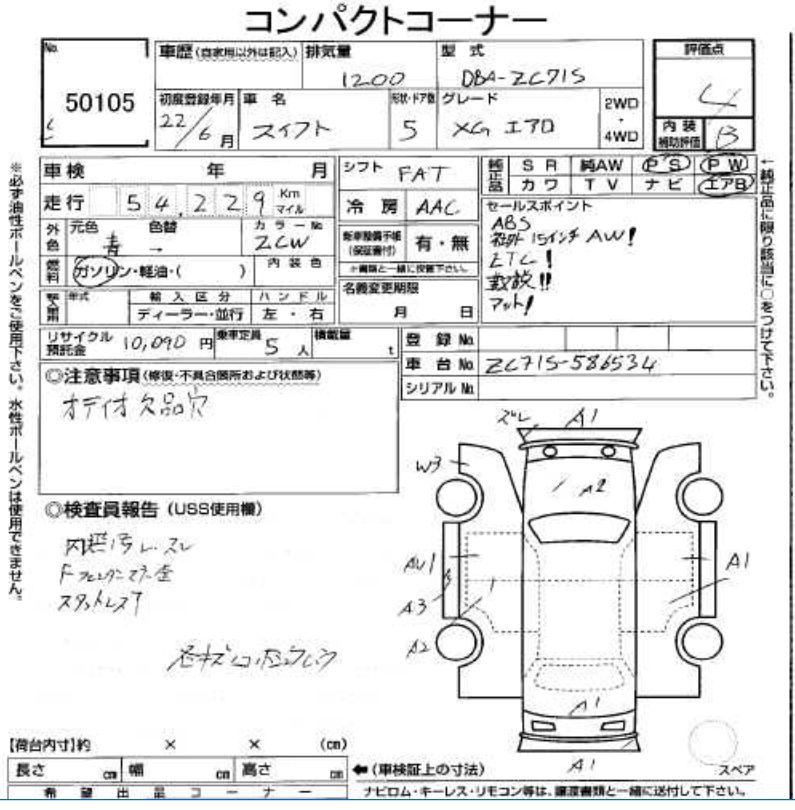 コンパクトコーナー
No.
50105
車歴(自家用以外は記入)
排気量
1200
型式
DBA-ZC71S
評価点
4
初度登録年月
22/6月
車名
スイフト
形状・ドア数
5
グレード
XG エアロ
2WD
・
4WD
内装
補助評価
B
車検 年 月
走行 54,229 Km
マイル
外色
元色
青
色替
→
カラーNo
ZCW
燃料
ガソリン・軽油・( )
内装色
年式
輸入区分
ディーラー・並行
ハンドル
左・右
シフト
FAT
冷房
AAC
新車整備手帳
(保証書付)
有・無
名義変更期限
月 日
純正品
SR 純AW PS PW
カワ TV ナビ エアB
セールスポイント
ABS
社外15インチAW!
ETC!
取説!!
マット!
リサイクル
預託金
10,090円
乗車定員
5人
積載量
t
登録No.
車台No. ZC71S-586534
シリアルNo.
◎注意事項(修復・不具合箇所および状態等)
オーディオ欠品穴
◎検査員報告(USS使用欄)
スタットレス
ズレ
A1
W3
A2
AU1
A3
A2
A1
A1
A1
スペア
【荷台内寸】約 × × (cm)
長さ cm 幅 cm 高さ cm
←(車検証上の寸法)
希望出品コーナー
ナビロム・キーレス・リモコン等は、譲渡書類と一緒に送付して下さい。
※必ず油性ボールペンをご使用下さい。水性ボールペンは使用できません。
←純正品に限り該当に○をつけて下さい。